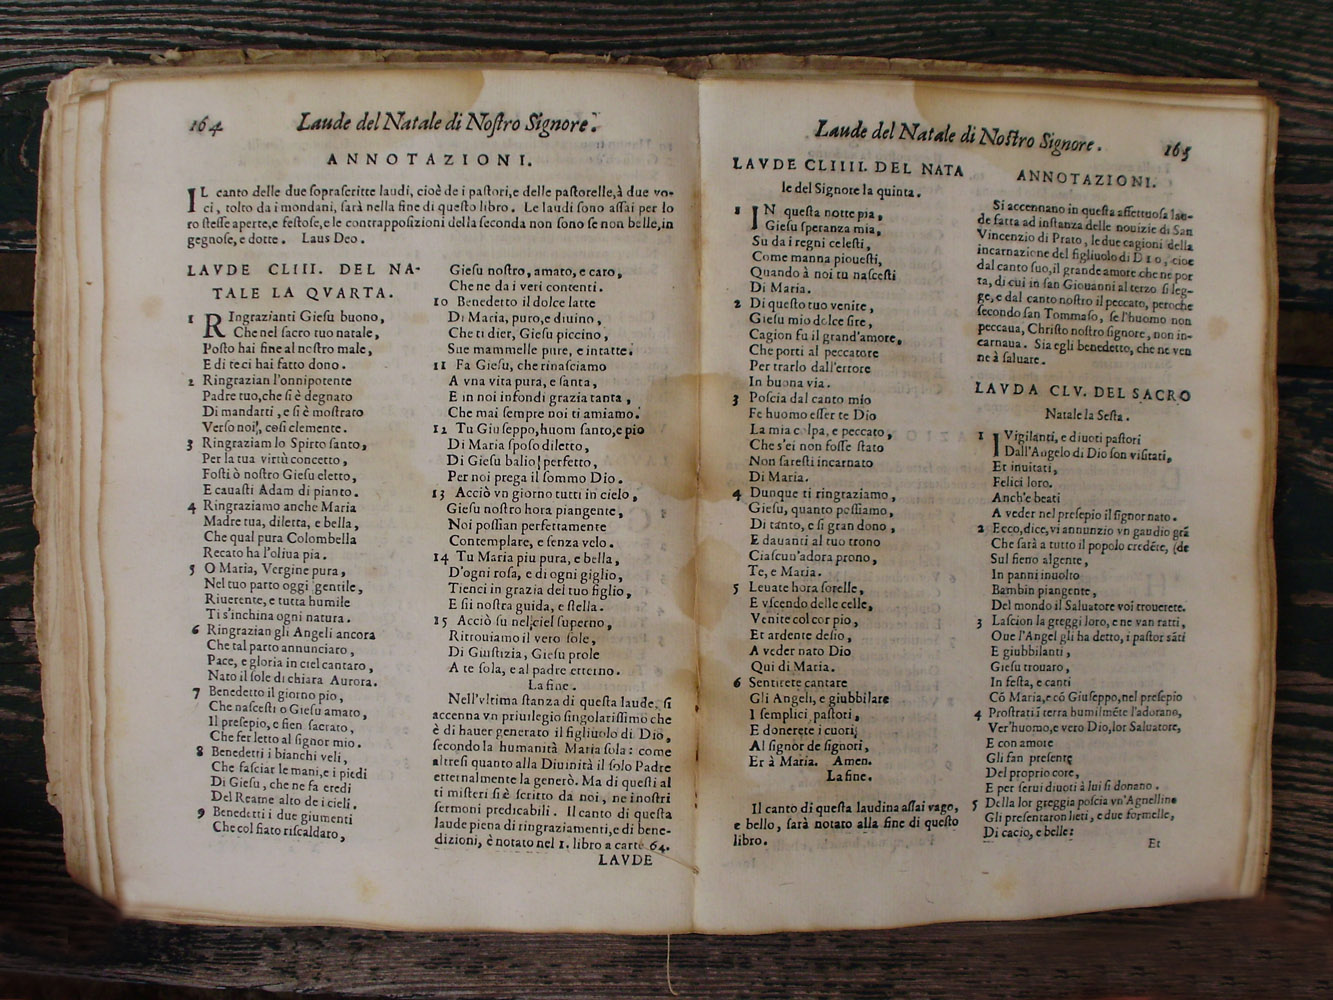 164
Laude del Natale di Noſtro Signore.
ANNOTAZIONI.
IL canto delle due ſopraſcritte laudi, cioè de i paſtori, e delle paſtorelle, à due vo-
ci, tolto da i mondani, ſarà nella fine di queſto libro. Le laudi ſono aſſai per lo
ro ſteſſe aperte, e feſtoſe, e le contrappoſizioni della ſeconda non ſono ſe non belle, in
gegnoſe, e dotte. Laus Deo.
LAVDE CLIII. DEL NA-
TALE LA QVARTA.
1 RIngrazianti Gieſu buono,
Che nel ſacro tuo natale,
Poſto hai fine al noſtro male,
E di te ci hai fatto dono.
2 Ringrazian l'onnipotente
Padre tuo, che ſi è degnato
Di mandarti, e ſi è moſtrato
Verſo noi, coſi clemente.
3 Ringraziam lo Spirto ſanto,
Per la tua virtù concetto,
Foſti ò noſtro Gieſu eletto,
E cauaſti Adam di pianto.
4 Ringraziamo anche Maria
Madre tua, diletta, e bella,
Che qual pura Colombella
Recato ha l'oliua pia.
5 O Maria, Vergine pura,
Nel tuo parto oggi gentile,
Riuerente, e tutta humile
Ti s'inchina ogni natura.
6 Ringrazian gli Angeli ancora
Che tal parto annunciaro,
Pace, e gloria in ciel cantaro,
Nato il ſole di chiara Aurora.
7 Benedetto il giorno pio,
Che naſceſti o Gieſu amato,
Il preſepio, e fien ſacrato,
Che fer letto al ſignor mio.
8 Benedetti i bianchi veli,
Che faſciar le mani, e i piedi
Di Gieſu, che ne fa eredi
Del Reame alto de i cieli.
9 Benedetti i due giumenti
Che col fiato riſcaldaro,
Gieſu noſtro, amato, e caro,
Che ne da i veri contenti.
10 Benedetto il dolce latte
Di Maria, puro, e diuino,
Che ti dier, Gieſu piccino,
Sue mammelle pure, e intatte.
11 Fa Gieſu, che rinaſciamo
A vna vita pura, e ſanta,
E in noi infondi grazia tanta,
Che mai ſempre noi ti amiamo.
12 Tu Giuſeppo, huom ſanto, e pio
Di Maria ſpoſo diletto,
Di Gieſu balio perfetto,
Per noi prega il ſommo Dio.
13 Acciò vn giorno tutti in cielo,
Gieſu noſtro hora piangente,
Noi poſſian perfettamente
Contemplare, e ſenza velo.
14 Tu Maria piu pura, e bella,
D'ogni roſa, e di ogni giglio,
Tienci in grazia del tuo figlio,
E ſii noſtra guida, e ſtella.
15 Acciò ſu nel ciel ſuperno,
Ritrouiamo il vero ſole,
Di Giuſtizia, Gieſu prole
A te ſola, e al padre etterno.
La fine.
Nell'vltima ſtanza di queſta laude, ſi
accenna vn priuilegio ſingolariſſimo che
è di hauer generato il figliuolo di Dio,
ſecondo la humanità Maria ſola: come
altreſi quanto alla Diuinità il ſolo Padre
etternalmente la generò. Ma di queſti al
ti miſteri ſi è ſcritto da noi, ne i noſtri
ſermoni predicabili. Il canto di queſta
laude piena di ringraziamenti, e di bene-
dizioni, è notato nel 1. libro a carte 64.
LAVDE
Laude del Natale di Noſtro Signore.
165
LAVDE CLIIII. DEL NATA
le del Signore la quinta.
1 IN queſta notte pia,
Gieſu ſperanza mia,
Su da i regni celeſti,
Come manna pioueſti,
Quando à noi tu naſceſti
Di Maria.
2 Di queſto tuo venire,
Gieſu mio dolce ſire,
Cagion fu il grand'amore,
Che porti al peccatore
Per trarlo dall'errore
In buona via.
3 Poſcia dal canto mio
Fe huomo eſſer te Dio
La mia colpa, e peccato,
Che s'ei non foſſe ſtato
Non ſareſti incarnato
Di Maria.
4 Dunque ti ringraziamo,
Gieſu, quanto poſſiamo,
Di tanto, e ſi gran dono,
E dauanti al tuo trono
Ciaſcun'adora prono,
Te, e Maria.
5 Leuate hora ſorelle,
E vſcendo delle celle,
Venite col cor pio,
Et ardente deſio,
A veder nato Dio
Qui di Maria.
6 Sentirete cantare
Gli Angeli, e giubbilare
I ſemplici paſtori,
E donerete i cuori
Al ſignor de ſignori,
Et à Maria. Amen.
La fine.
Il canto di queſta laudina aſſai vago,
e bello, ſarà notato alla fine di queſto
libro.
ANNOTAZIONI.
Si accennano in queſta affettuoſa lau-
de fatta ad inſtanza delle nouizie di San
Vincenzio di Prato, le due cagioni della
incarnazione del figliuolo di DIO, cioè
dal canto ſuo, il grande amore che ne por
ta, di cui in ſan Giouanni al terzo ſi leg-
ge, e dal canto noſtro il peccato, peroche
ſecondo ſan Tommaſo, ſe l'huomo non
peccaua, Chriſto noſtro ſignore, non in-
carnaua. Sia egli benedetto, che ne ven
ne à ſaluare.
LAVDA CLV. DEL SACRO
Natale la Seſta.
1 IVigilanti, e diuoti paſtori
Dall'Angelo di Dio ſon viſitati,
Et inuitati,
Felici loro.
Anch'e beati
A veder nel preſepio il ſignor nato.
2 Ecco, dice, vi annunzio vn gaudio grã
Che ſarà a tutto il popolo credẽte, (de
Sul fieno algente,
In panni inuolto
Bambin piangente,
Del mondo il Saluatore voi trouerete.
3 Laſcion la greggi loro, e ne van ratti,
Oue l'Angel gli ha detto, i paſtor sãti
E giubbilanti,
Gieſu trouaro,
In feſta, e canti
Cõ Maria, e cõ Giuſeppo, nel preſepio
4 Proſtrati ĩ terra humilmẽte l'adorano,
Ver'huomo, e vero Dio, lor Saluatore,
E con amore
Gli fan preſente
Del proprio core,
E per ſerui diuoti à lui ſi donano.
5 Della lor greggia poſcia vn'Agnellino
Gli preſentaron lieti, e due formelle,
Di cacio, e belle:
Et